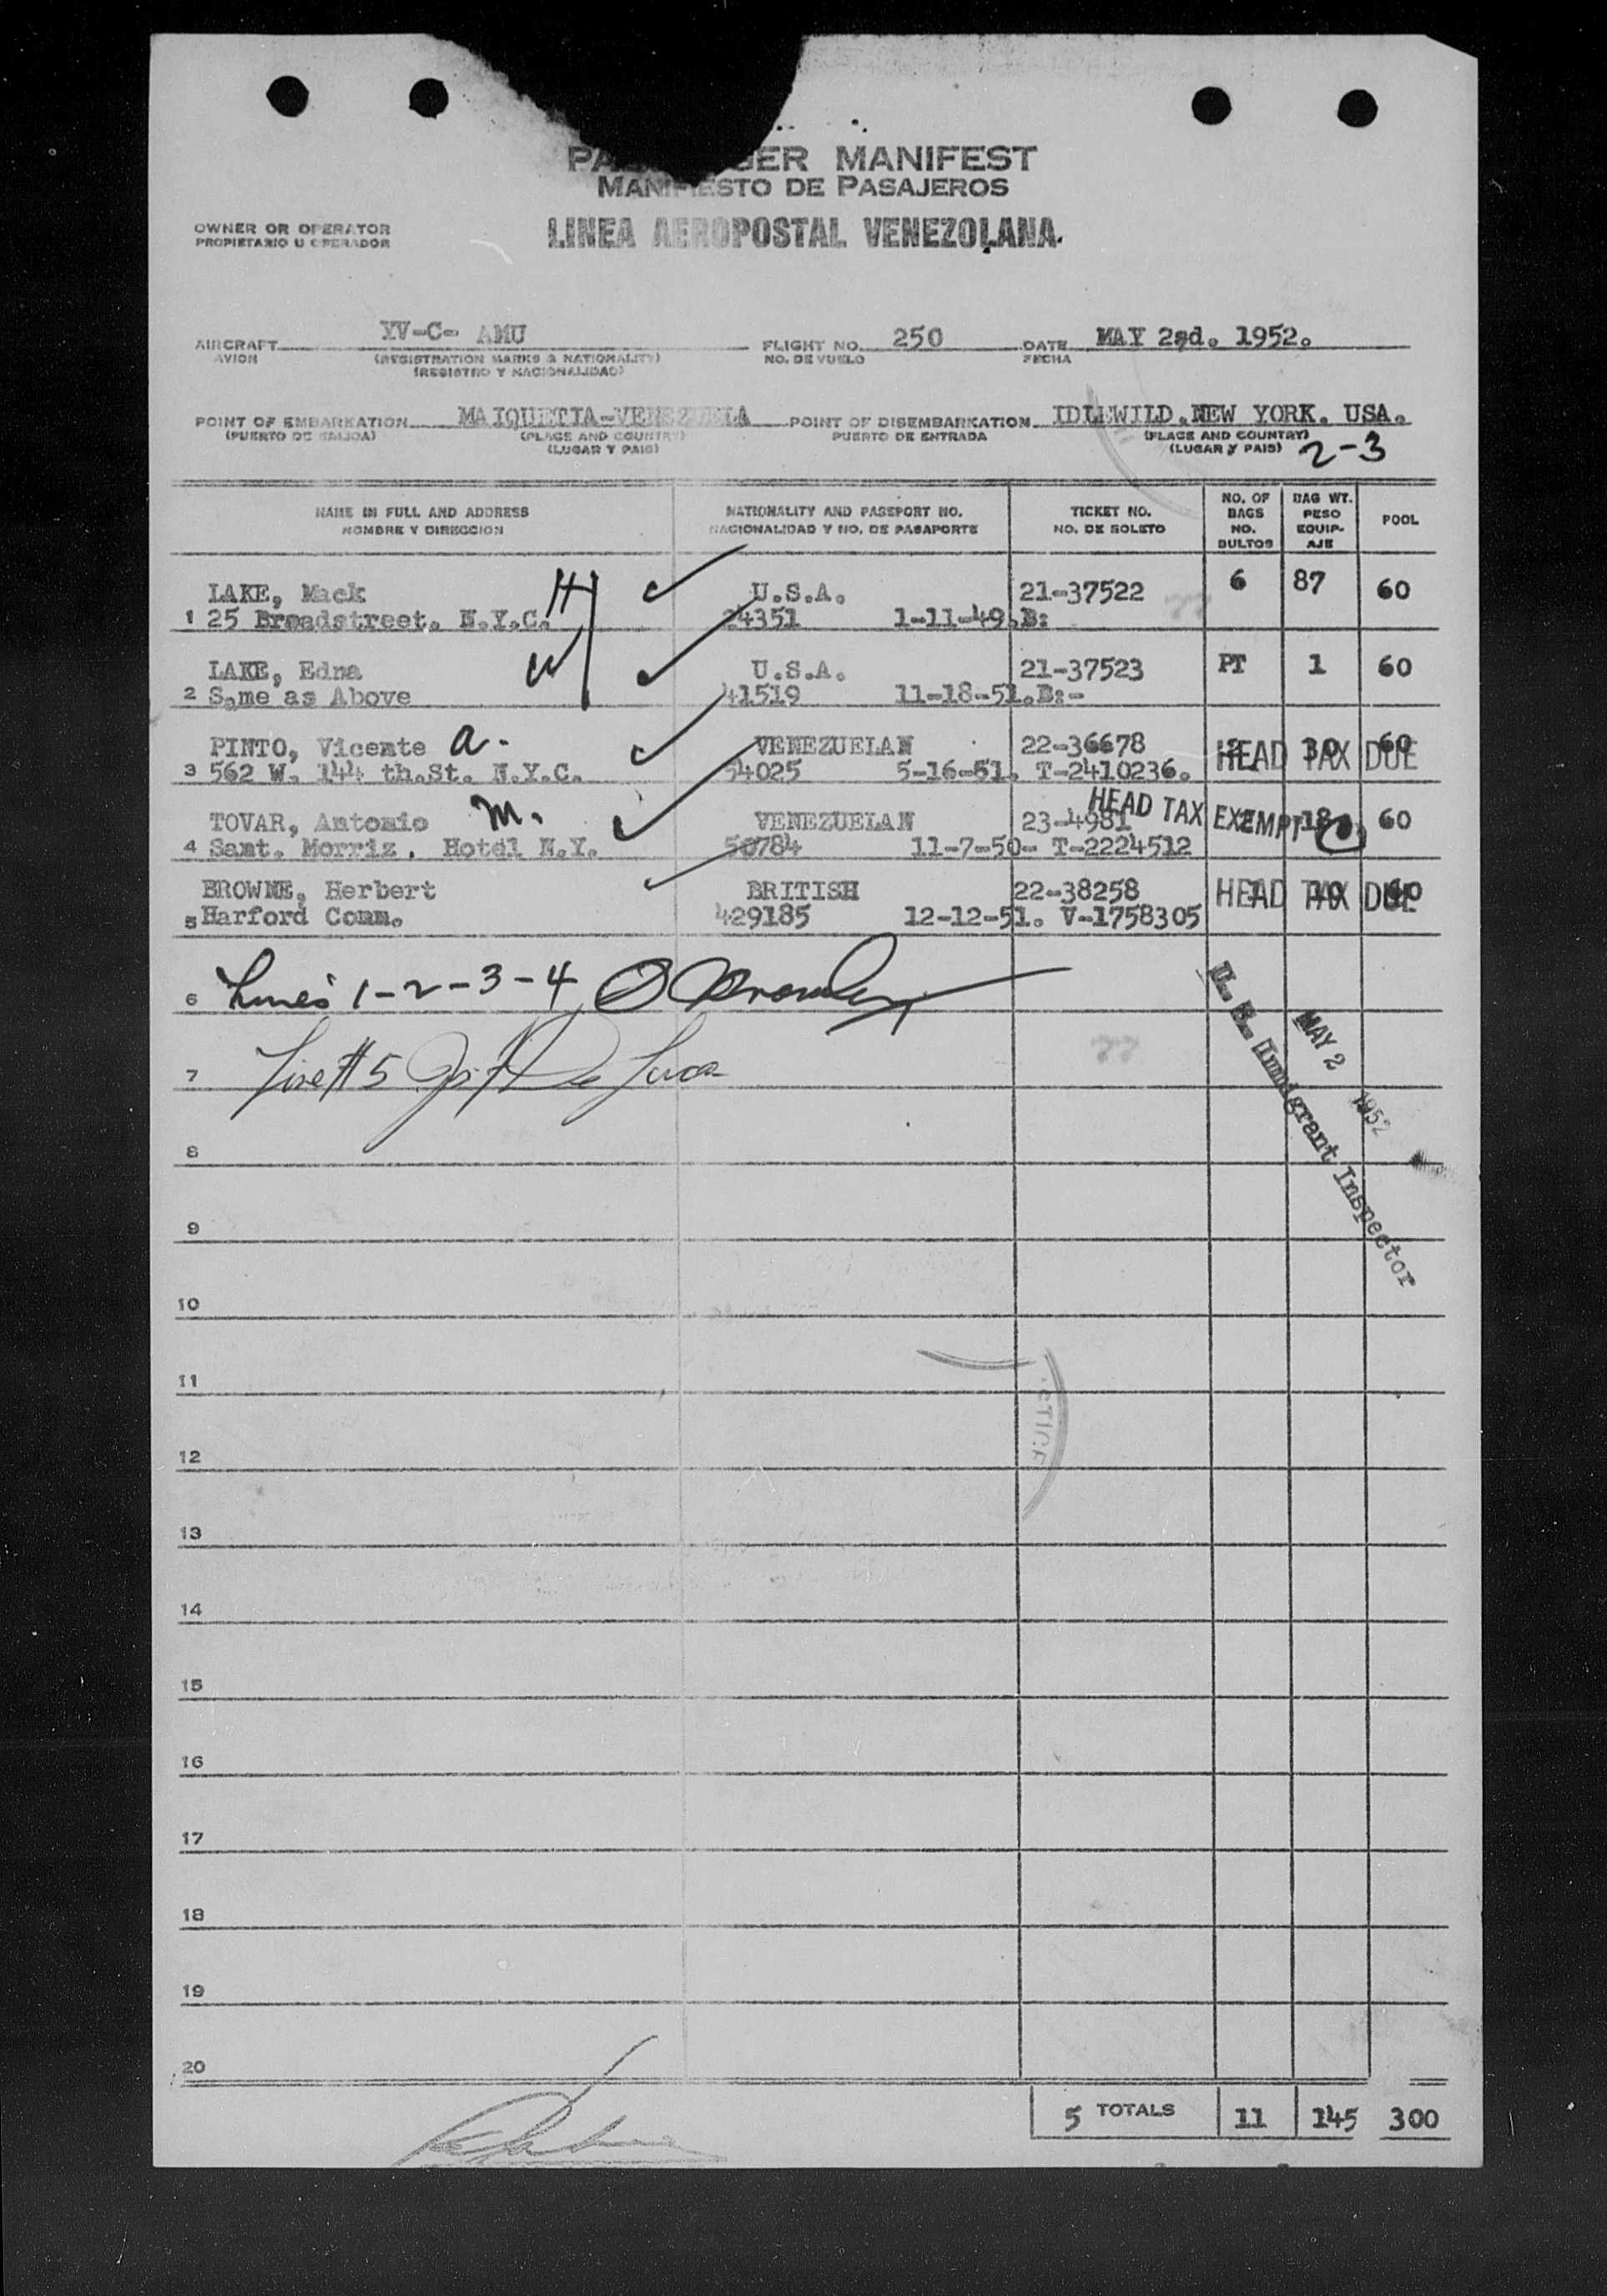 PASSENGER MANIFEST
MANIFIESTO DE PASAJEROS
OWNER OR OPERATOR
PROPIETARIO U OPERADOR
LINEA AEROPOSTAL VENEZOLANA.
AIRCRAFT YV-C- AMU FLIGHT NO. 250 DATE MAY 2nd. 1952.
AVION (REGISTRATION MARKS & NATIONALITY) NO. DE VUELO FECHA
(REGISTRO Y NACIONALIDAD)
POINT OF EMBARKATION MAIQUETIA-VENEZUELA POINT OF DISEMBARKATION IDLEWILD.NEW YORK. USA.
(PUERTO DE SALIDA) (PLACE AND COUNTRY) PUERTO DE ENTRADA (PLACE AND COUNTRY)
(LUGAR Y PAIS) (LUGAR Y PAIS) 2-3
NAME IN FULL AND ADDRESS NATIONALITY AND PASSPORT NO. TICKET NO. NO. OF BAGS BAG WT. POOL
NOMBRE Y DIRECCION NACIONALIDAD Y NO. DE PASAPORTE NO. DE BOLETO NO. BULTOS PESO EQUIP-AJE
LAKE, Mack H U.S.A. 21-37522 6 87 60
1 25 Broadstreet. N.Y.C. 24351 1-11-49.B:
LAKE, Edna W U.S.A. 21-37523 PT 1 60
2 Same as Above 41519 11-18-51.B:-
PINTO, Vicente a. VENEZUELAN 22-36678 HEAD TAX DUE 60
3 562 W. 144 th.St. N.Y.C. 54025 5-16-51. T-2410236.
TOVAR, Antonio m. VENEZUELAN 23-4981 HEAD TAX EXEMPT 18 60
4 Samt. Morriz. Hotel N.Y. 50784 11-7-50- T-2224512
BROWNE, Herbert BRITISH 22-38258 HEAD TAX DUE
5 Harford Comm. 429185 12-12-51. V-1758305
6 Lines 1-2-3-4
7 Line # 5
77
U. S. Immigrant Inspector
MAY 2 1952
8
9
10
11
12
13
14
15
16
17
18
19
20
5 TOTALS 11 145 300